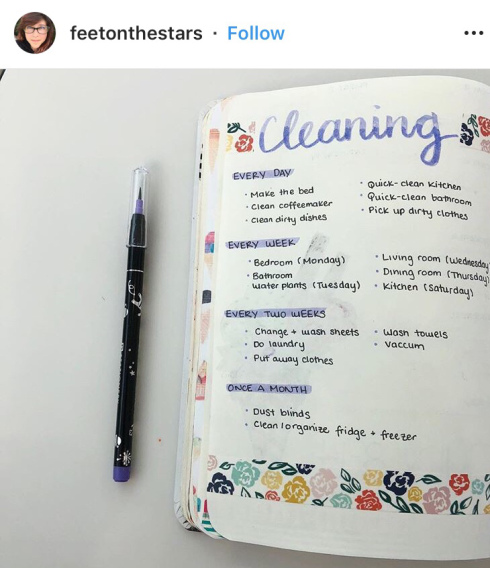 feetonthestars · Follow
Cleaning
EVERY DAY
· Make the bed
· Clean coffeemaker
· Clean dirty dishes
· Quick-clean kitchen
· Quick-clean bathroom
· Pick up dirty clothes
EVERY WEEK
· Bedroom (Monday)
· Bathroom
Water plants (Tuesday)
· Living room (Wednesday
· Dining room (Thursday)
· Kitchen (Saturday)
EVERY TWO WEEKS
· Change + wash sheets
· Do laundry
· Put away clothes
· Wash towels
· Vaccum
ONCE A MONTH
· Dust blinds
· Clean/organize fridge + freezer